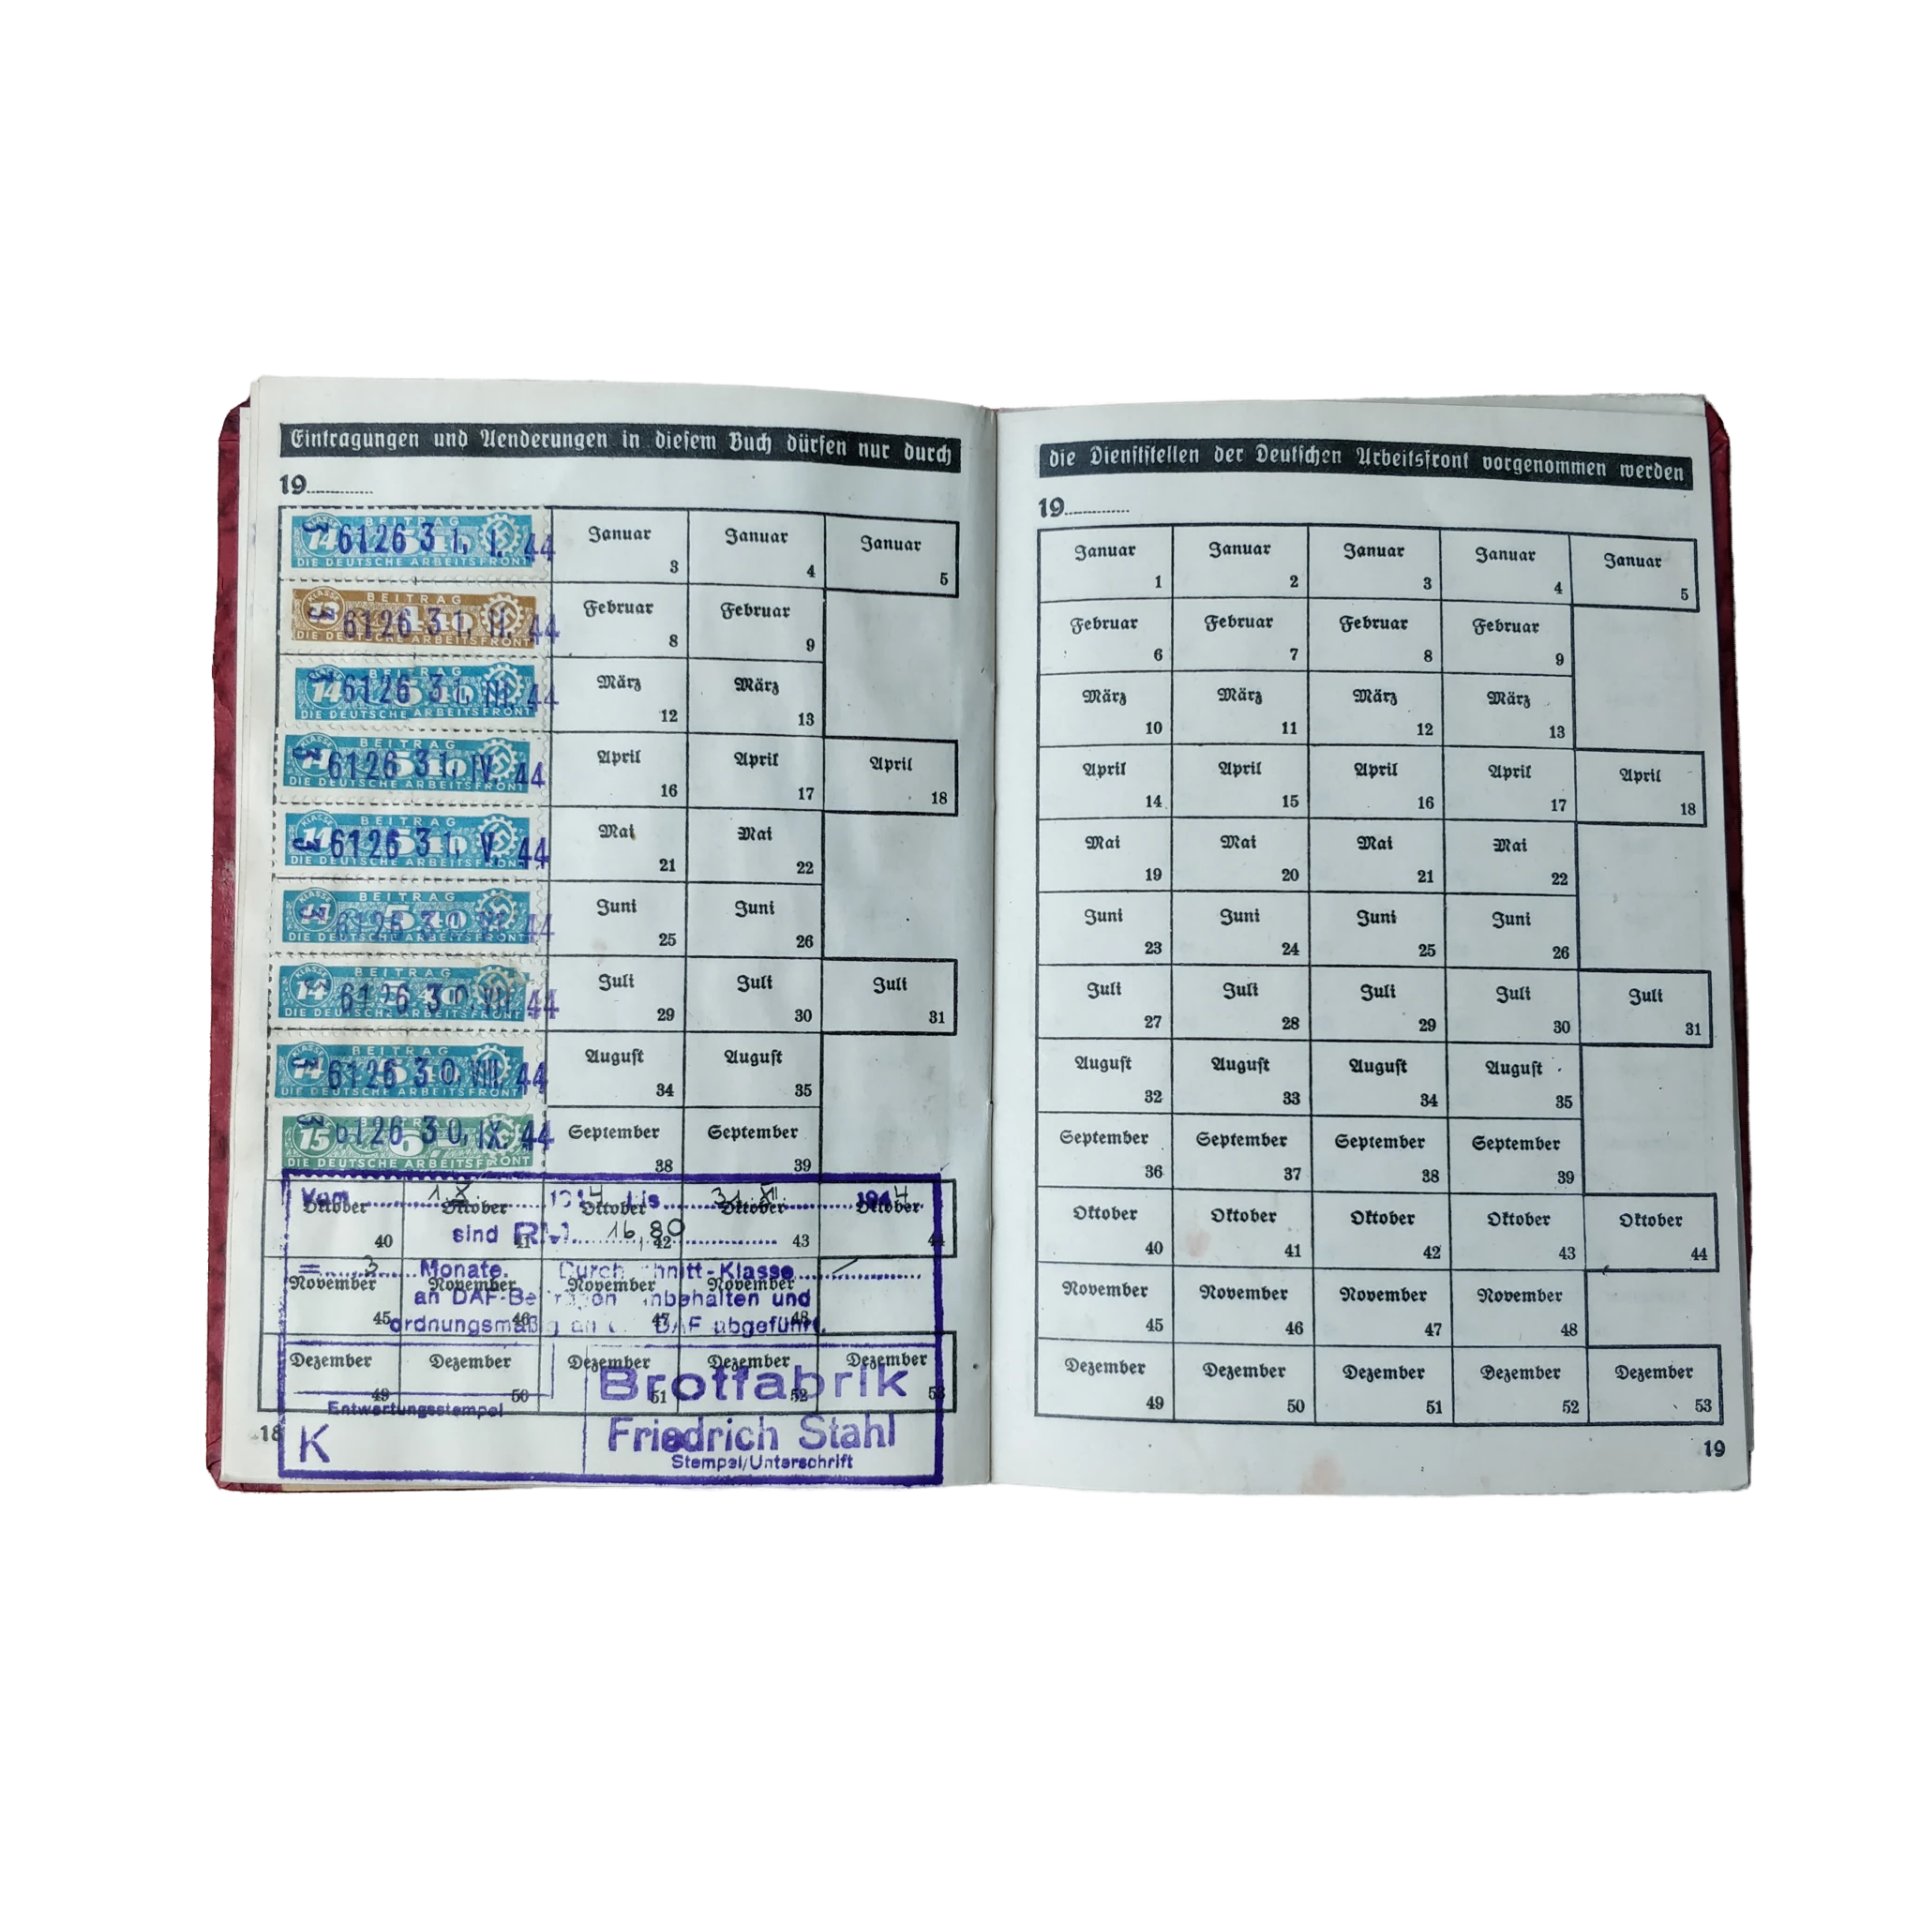 Eintragungen und Aenderungen in diesem Buch dürfen nur durch
19
KLASSE 14 BEITRAG 5,40 DIE DEUTSCHE ARBEITSFRONT
3 6126 31. I. 44
Januar 3 Januar 4 Januar 5
KLASSE BEITRAG DIE DEUTSCHE ARBEITSFRONT
3 6126 31. II. 44
Februar 8 Februar 9
14 BEITRAG 5,40 DIE DEUTSCHE ARBEITSFRONT
6126 31. III. 44
März 12 März 13
BEITRAG 5,40 DIE DEUTSCHE ARBEITSFRONT
3 6126 31. IV. 44
April 16 April 17 April 18
KLASSE 14 BEITRAG 5,40 DIE DEUTSCHE ARBEITSFRONT
3 6126 31. V. 44
Mai 21 Mai 22
KLASSE BEITRAG 5,40 DIE DEUTSCHE ARBEITSFRONT
3 6126 30. VI. 44
Juni 25 Juni 26
KLASSE 14 BEITRAG 5,40 DIE DEUTSCHE ARBEITSFRONT
6126 30. VII. 44
Juli 29 Juli 30 Juli 31
14 BEITRAG 5,40 DIE DEUTSCHE ARBEITSFRONT
3 6126 30. VIII. 44
August 34 August 35
15 6,- DIE DEUTSCHE ARBEITSFRONT
3 6126 30. IX. 44
September 38 September 39
Oktober 40 Oktober 41 Oktober 42 Oktober 43 Oktober 44
November 45 November 46 November 47 November 48
Dezember 49 Dezember 50 Dezember 51 Dezember 52 Dezember 53
Vom 1. X. 1944 bis 31. XII. 1944
sind RM. 16,80
= 3 Monate. Durchschnitt-Klasse /
an DAF-Beiträgen einbehalten und
ordnungsmäßig an die DAF abgeführt.
Entwertungsstempel
K
Brotfabrik
Friedrich Stahl
Stempel/Unterschrift
18
die Dienststellen der Deutschen Arbeitsfront vorgenommen werden
19
Januar 1 Januar 2 Januar 3 Januar 4 Januar 5
Februar 6 Februar 7 Februar 8 Februar 9
März 10 März 11 März 12 März 13
April 14 April 15 April 16 April 17 April 18
Mai 19 Mai 20 Mai 21 Mai 22
Juni 23 Juni 24 Juni 25 Juni 26
Juli 27 Juli 28 Juli 29 Juli 30 Juli 31
August 32 August 33 August 34 August 35
September 36 September 37 September 38 September 39
Oktober 40 Oktober 41 Oktober 42 Oktober 43 Oktober 44
November 45 November 46 November 47 November 48
Dezember 49 Dezember 50 Dezember 51 Dezember 52 Dezember 53
19